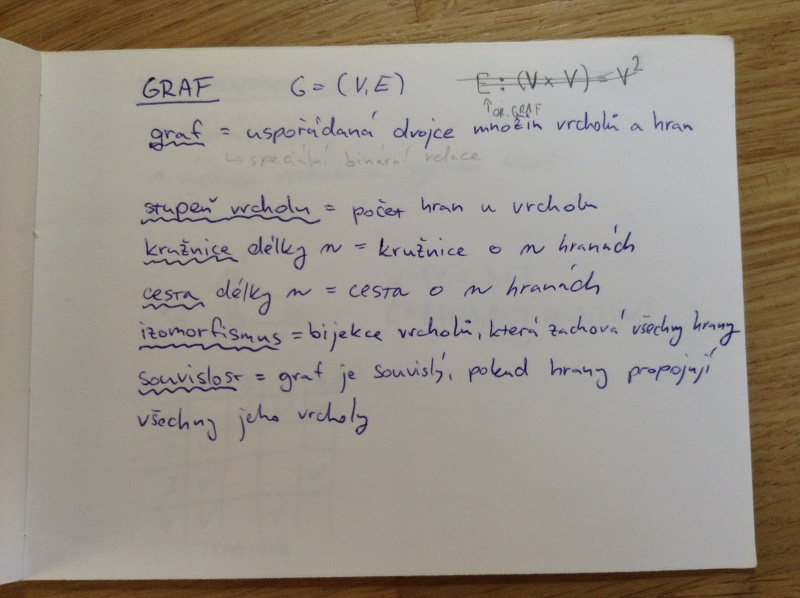 GRAF G = (V, E) E : (V × V) = V²
↑ OR. GRAF
graf = uspořádaná dvojce množin vrcholů a hran
↳ speciální binární relace
stupeň vrcholu = počet hran u vrcholu
kružnice délky n = kružnice o n hranách
cesta délky n = cesta o n hranách
izomorfismus = bijekce vrcholů, která zachová všechny hrany
souvislost = graf je souvislý, pokud hrany propojují
všechny jeho vrcholy